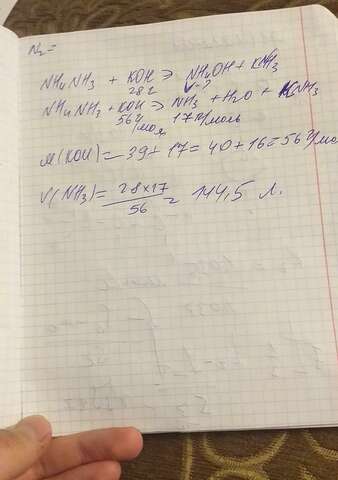 N2=
NH4NH3 + KOH → NH4OH + KNH3
28 г V-?
NH4NH3 + KOH → NH3 + H2O + KNH3
56 г/моль 17 г/моль
M(KOH) = 39 + 17 = 40 + 16 = 56 г/мо
V(NH3) = 28×17 / 56 = 144,5 л.